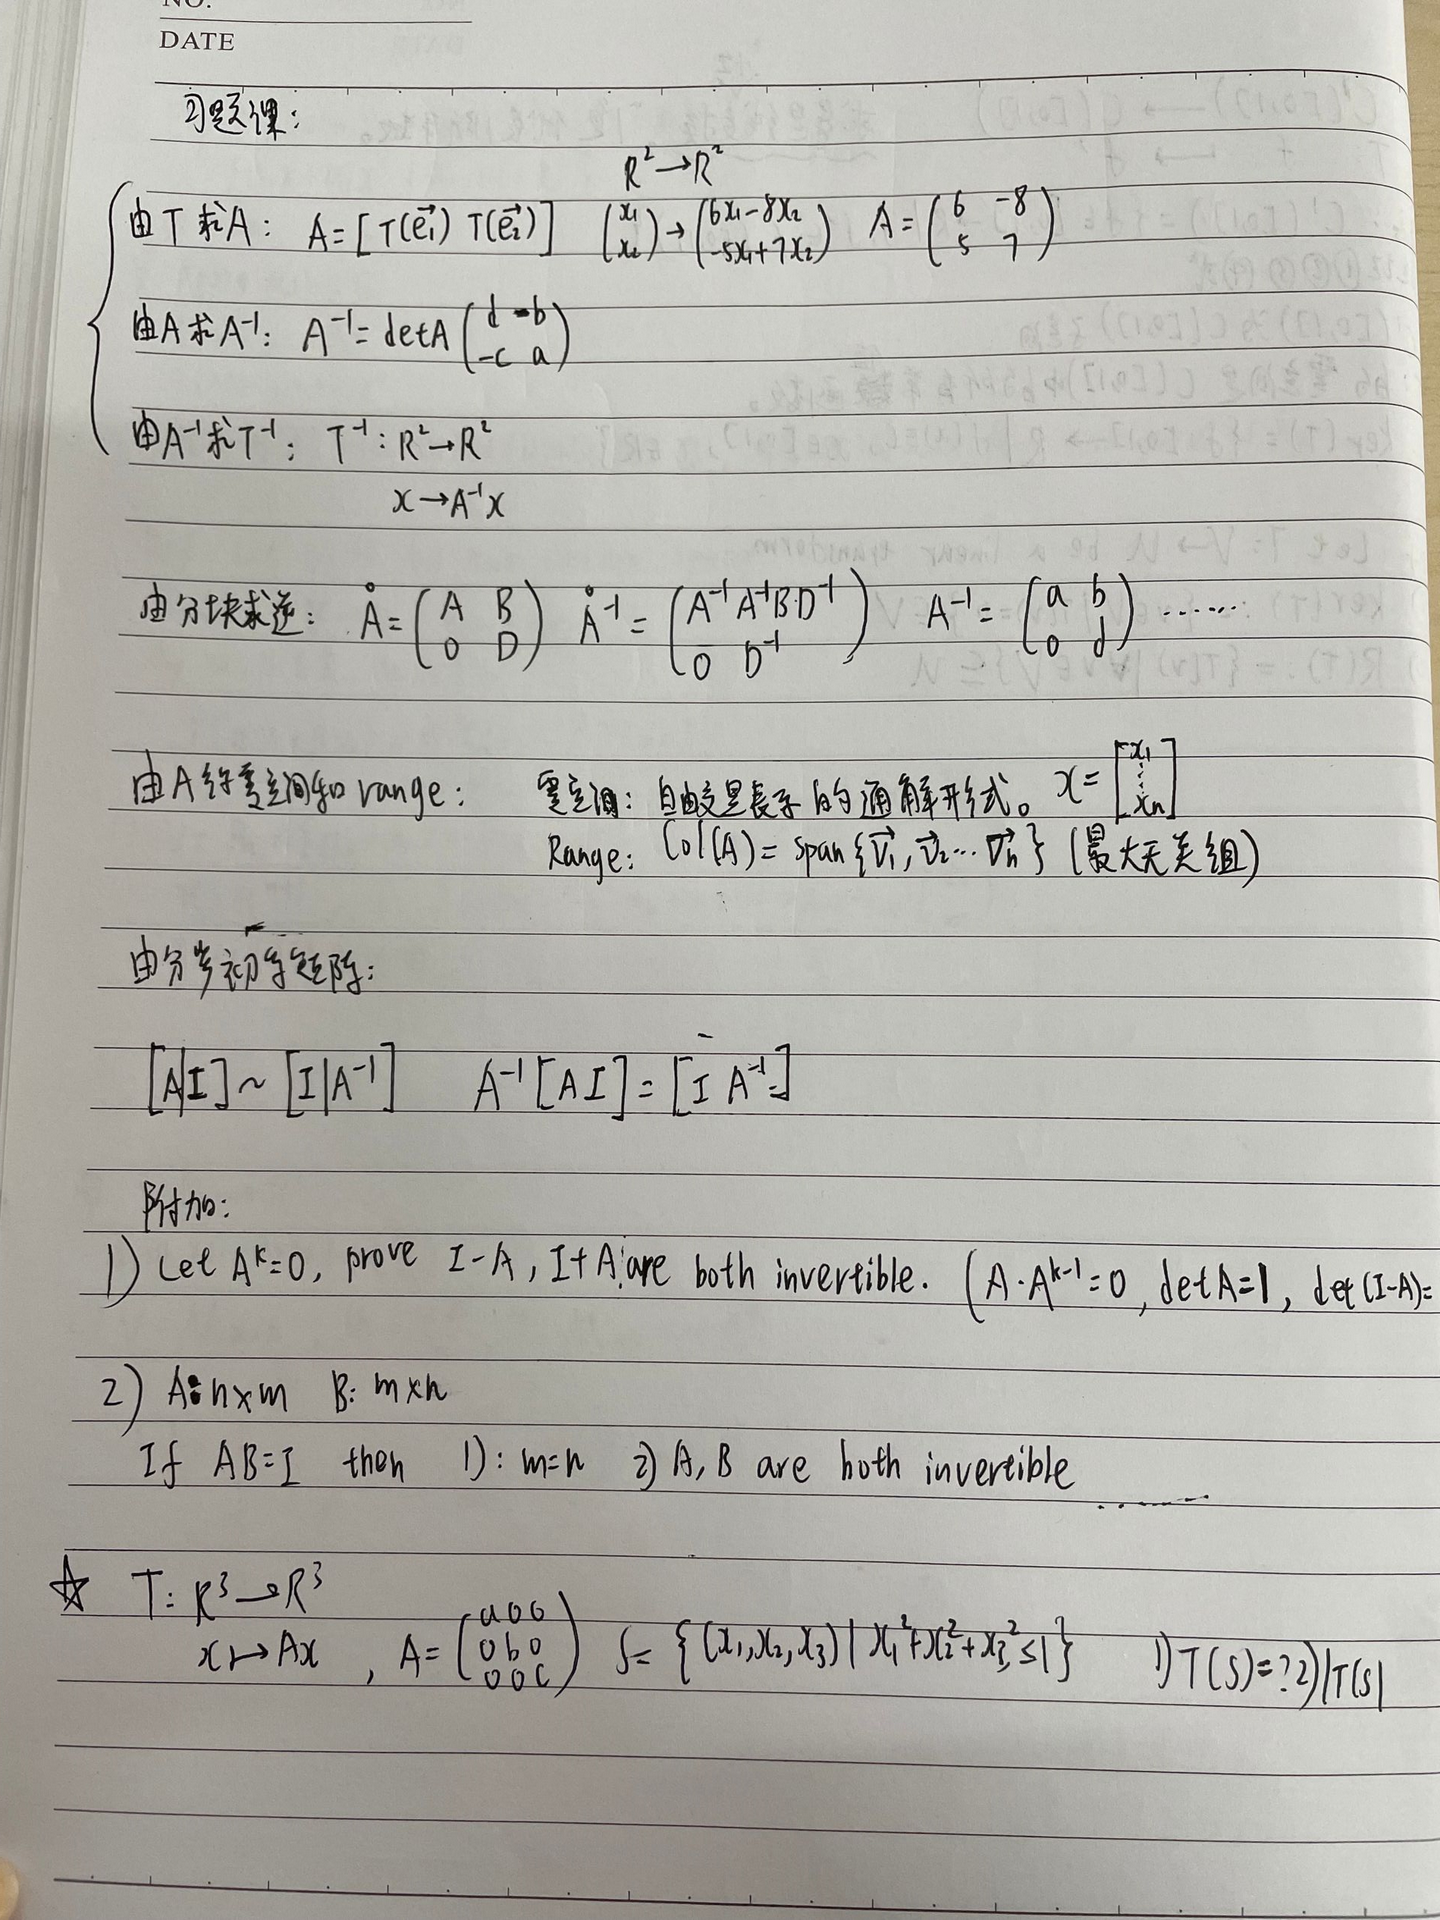 NO.
DATE
习题课:
R²→R²
由T求A: A=[T(e⃗₁) T(e⃗₂)] (x₁ x₂)→(6x₁-8x₂ -5x₁+7x₂) A=(6 -8 5 7)
由A求A⁻¹: A⁻¹=detA(d -b -c a)
由A⁻¹求T⁻¹: T⁻¹:R²→R²
x→A⁻¹x
由分块求逆: Å=(A B 0 D) Å⁻¹=(A⁻¹ A⁻¹B·D⁻¹ 0 D⁻¹) A⁻¹=(a b 0 d)……
由A求零空间和range: 零空间: 自由变量表示的通解形式。 x=[x₁ ⋮ xₙ]
Range: Col(A)=span{v⃗₁,v⃗₂…v⃗ₙ} (最大无关组)
由分步初等矩阵:
[A|I]~[I|A⁻¹] A⁻¹[A I]=[I A⁻¹]
附加:
1) Let Aᵏ=0, prove I-A, I+A are both invertible. (A·Aᵏ⁻¹=0, detA=1, det(I-A)=
2) A:n×m B:m×n
If AB=I then 1): m=n 2) A,B are both invertible
☆ T:R³→R³
x↦Ax , A=(a00 0b0 00c) S={(x₁,x₂,x₃)|x₁²+x₂²+x₃²≤1} 1)T(S)=?2)|T(S|